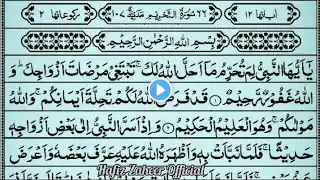 اٰیاتها ١٢ ٦٦ سُوْرَةُ التَّحْرِيْمِ مَدَنِيَّةٌ ١٠٧ رکوعاتها ٢
بِسْمِ اللّٰهِ الرَّحْمٰنِ الرَّحِيْمِ
يٰٓاَيُّهَا النَّبِيُّ لِمَ تُحَرِّمُ مَآ اَحَلَّ اللّٰهُ لَكَ ۚ تَبْتَغِيْ مَرْضَاتَ اَزْوَاجِكَ ؕ وَ
اللّٰهُ غَفُوْرٌ رَّحِيْمٌ ١ قَدْ فَرَضَ اللّٰهُ لَكُمْ تَحِلَّةَ اَيْمَانِكُمْ ۚ وَاللّٰهُ
مَوْلٰىكُمْ ۚ وَهُوَ الْعَلِيْمُ الْحَكِيْمُ ٢ وَاِذْ اَسَرَّ النَّبِيُّ اِلٰى بَعْضِ اَزْوَاجِهٖ
حَدِيْثًا ۚ فَلَمَّا نَبَّاَتْ بِهٖ وَاَظْهَرَهُ اللّٰهُ عَلَيْهِ عَرَّفَ بَعْضَهٗ وَاَعْرَضَ
Hafiz Zaheer Official